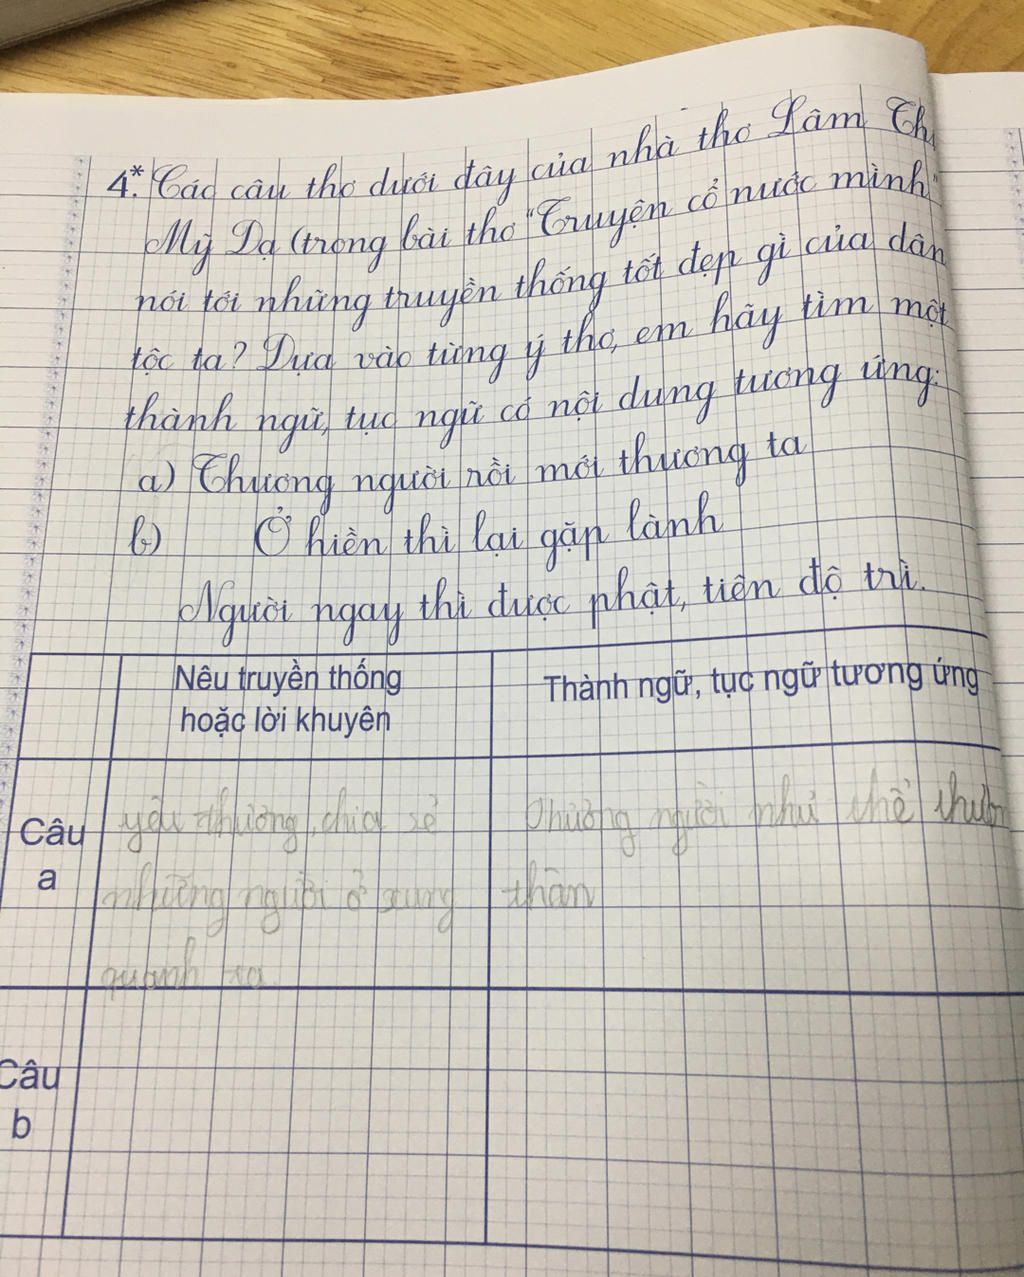 4.* Các câu thơ dưới đây của nhà thơ Lâm Thị
Mỹ Dạ (trong bài thơ "Truyện cổ nước mình"
nói tới những truyền thống tốt đẹp gì của dân
tộc ta? Dựa vào từng ý thơ, em hãy tìm một
thành ngữ, tục ngữ có nội dung tương ứng:
a) Thương người rồi mới thương ta
b) Ở hiền thì lại gặp lành
Người ngay thì được phật, tiên độ trì.
Nêu truyền thống
hoặc lời khuyên
Thành ngữ, tục ngữ tương ứng
Câu
a
yêu thương, chia sẻ
những người ở xung
quanh ta.
Thương người như thể thươn
thân
Câu
b